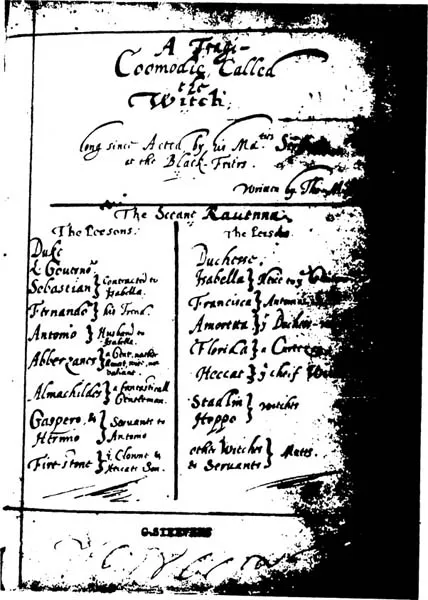 A Tragi-
Coomodie, Called
the
Witch;
long since Acted, by his Ma.ties
at the Black-Friers.
Written by Tho.
The Sceane Ravenna.
The Persons.
Duke
L Governor
Sebastian} Contracted to Isabella.
Fernando} his frend.
Antonio} Husband to Isabella.
Abberzanes} a Gent. neither honest, wise, nor valiant.
Almachildes} a fantasticall Gentleman.
Gaspero, & Hermio} Servants to Antonio
Firestone} ye Clowne & Heccats Son.
The Persons
Duchesse.
Isabella} Neice to ye
Francisca} Antonio's
Amoretta} ye Duchess
Florida} a Curtezan
Heccat} ye cheif
Stadlin
Hoppo} witches
other Witches & Servants} Mutes.
G.STEEVENS